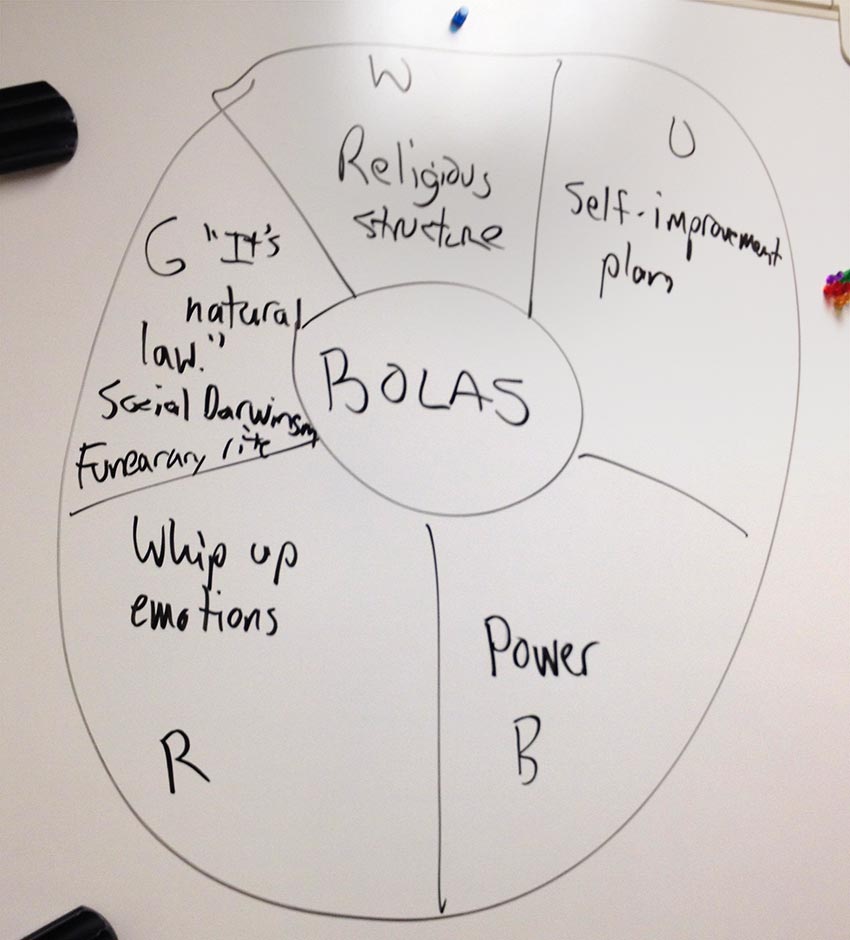 W
Religious
structure
U
Self-improvement
plan
G "It's
natural
law."
Social Darwinism
Funearary rite
BOLAS
Whip up
emotions
R
Power
B